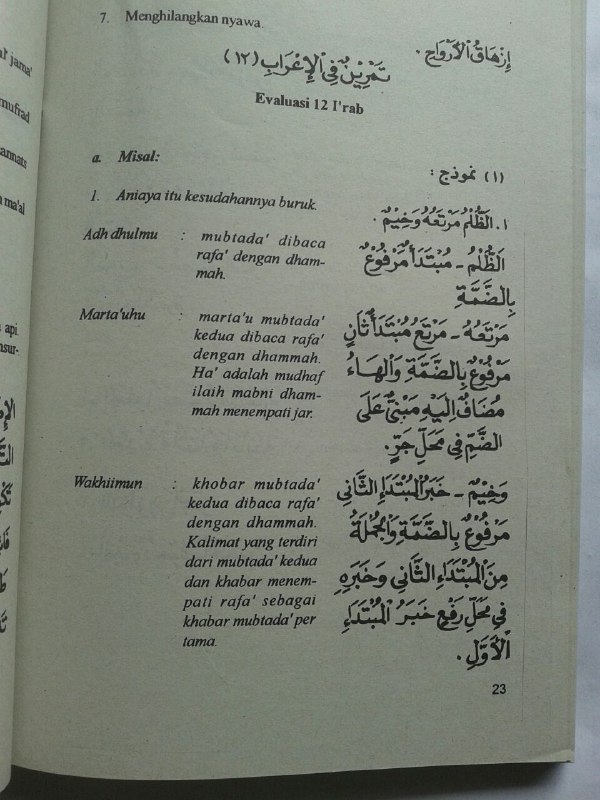 al jama'
mufrad
annats
ma'al
api
nsur-
7. Menghilangkan nyawa.
إِزْهَاقُ الْأَرْوَاحِ .
تَمْرِيْنٌ فِي الْإِعْرَابِ (١٢)
Evaluasi 12 I'rab
a. Misal:
(١) نموذج :
1. Aniaya itu kesudahannya buruk.
١. الظُّلْمُ مَرْتَعُهُ وَخِيْمٌ .
Adh dhulmu : mubtada' dibaca
rafa' dengan dham-
mah.
الظُّلْمُ - مُبْتَدَأٌ مَرْفُوْعٌ
بِالضَّمَّةِ
Marta'uhu : marta'u mubtada'
kedua dibaca rafa'
dengan dhammah.
Ha' adalah mudhaf
ilaih mabni dham-
mah menempati jar.
مَرْتَعُهُ - مَرْتَعُ مُبْتَدَأٌ ثَانٍ
مَرْفُوْعٌ بِالضَّمَّةِ وَالْهَاءُ
مُضَافٌ إِلَيْهِ مَبْنِيٌّ عَلَى
الضَّمِّ فِي مَحَلِّ جَرٍّ .
Wakhiimun : khobar mubtada'
kedua dibaca rafa'
dengan dhammah.
Kalimat yang terdiri
dari mubtada' kedua
dan khabar menem-
pati rafa' sebagai
khabar mubtada' per
tama.
وَخِيْمٌ - خَبَرُ الْمُبْتَدَإِ الثَّانِي
مَرْفُوْعٌ بِالضَّمَّةِ وَالْجُمْلَةُ
مِنَ الْمُبْتَدَاءِ الثَّانِي وَخَبَرِهِ
فِي مَحَلِّ رَفْعٍ خَبَرُ الْمُبْتَدَاءِ
الْأَوَّلِ .
23